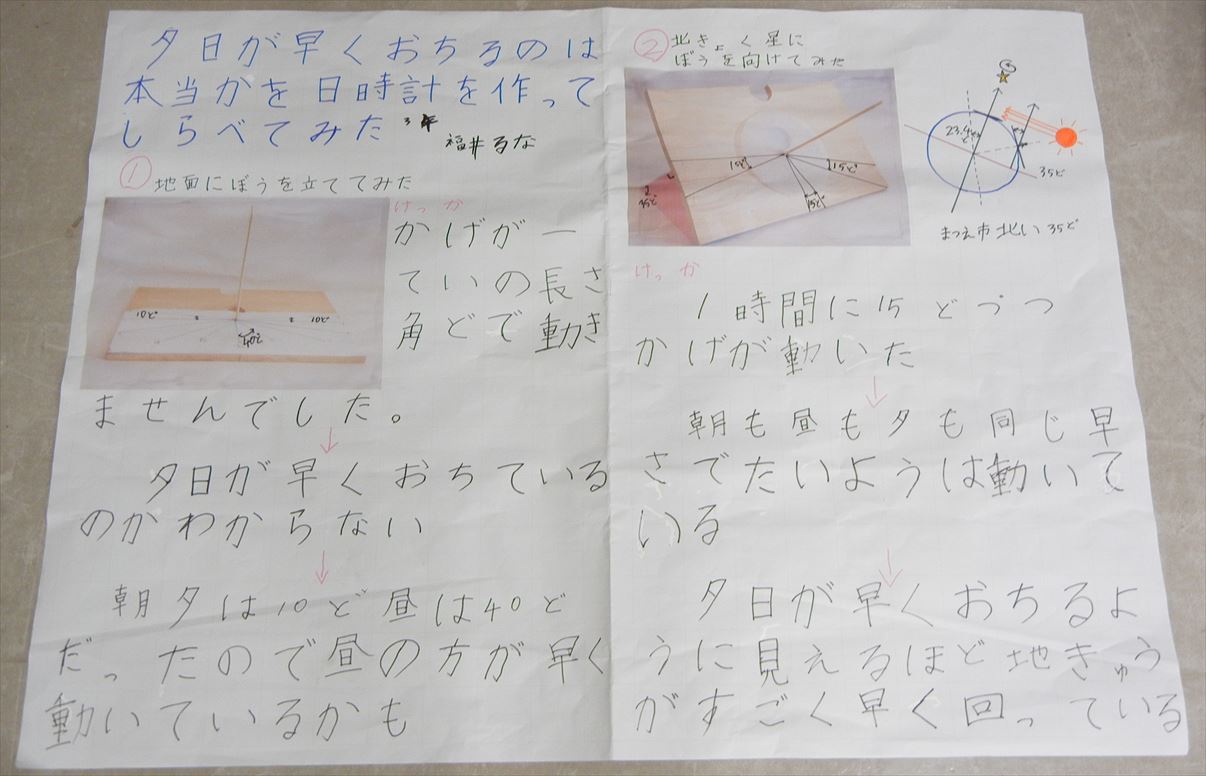 夕日が早くおちるのは
本当かを日時計を作って
しらべてみた 3年
福井るな
① 地面にぼうを立ててみた
10ど
10ど
40ど
けっか
かげが一
ていの長さ
角どで動き
ませんでした。
↓
夕日が早くおちている
のかわからない
↓
朝夕は10ど昼は40ど
だったので昼の方が早く
動いているかも
② 北きょく星に
ぼうを向けてみた
15ど
15ど
15ど
35ど
23.4ど
35ど
まつえ市北い35ど
けっか
1時間に15どづつ
かげが動いた
↓
朝も昼も夕も同じ早
さでたいようは動いて
いる
↓
夕日が早くおちるよ
うに見えるほど地きゅう
がすごく早く回っている